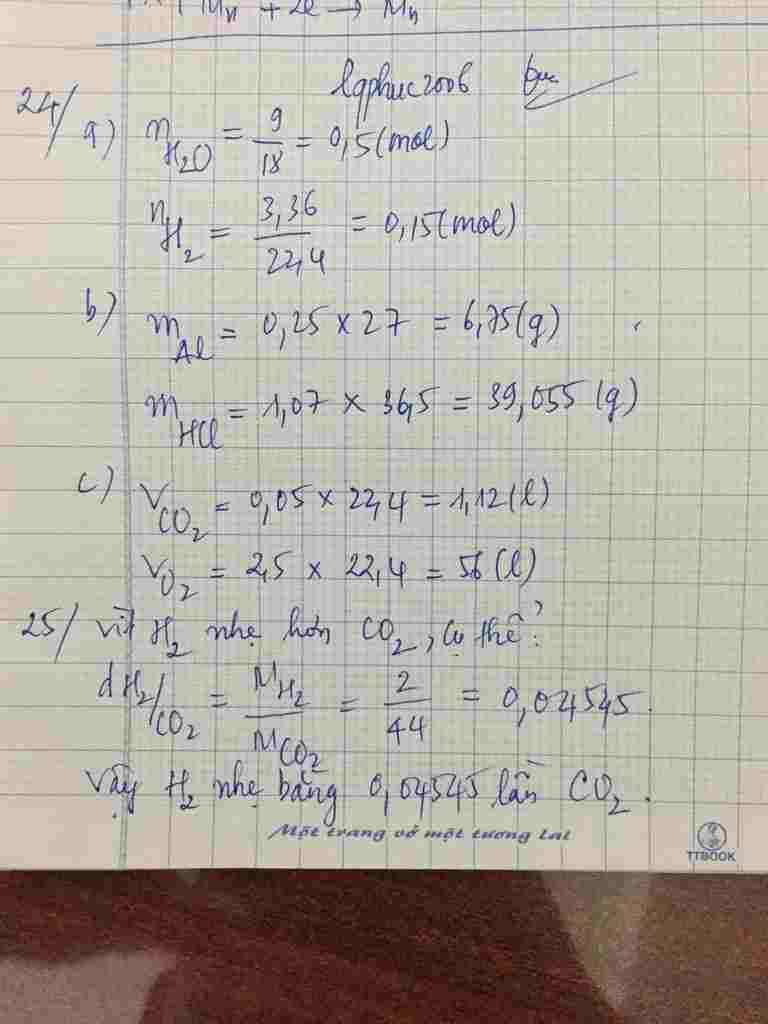 + 2e → Mn
lqphuc2006
24/ a) n H₂O = 9/18 = 0,5 (mol)
n H₂ = 3,36/22,4 = 0,15 (mol)
b) m Al = 0,25 × 27 = 6,75 (g)
m HCl = 1,07 × 36,5 = 39,055 (g)
c) V CO₂ = 0,05 × 22,4 = 1,12 (l)
V O₂ = 2,5 × 22,4 = 56 (l)
25/ Vì H₂ nhẹ hơn CO₂, cụ thể:
d H₂/CO₂ = M H₂/M CO₂ = 2/44 = 0,04545.
Vậy H₂ nhẹ bằng 0,04545 lần CO₂.
Một trang vở một tương lai
TTBOOK